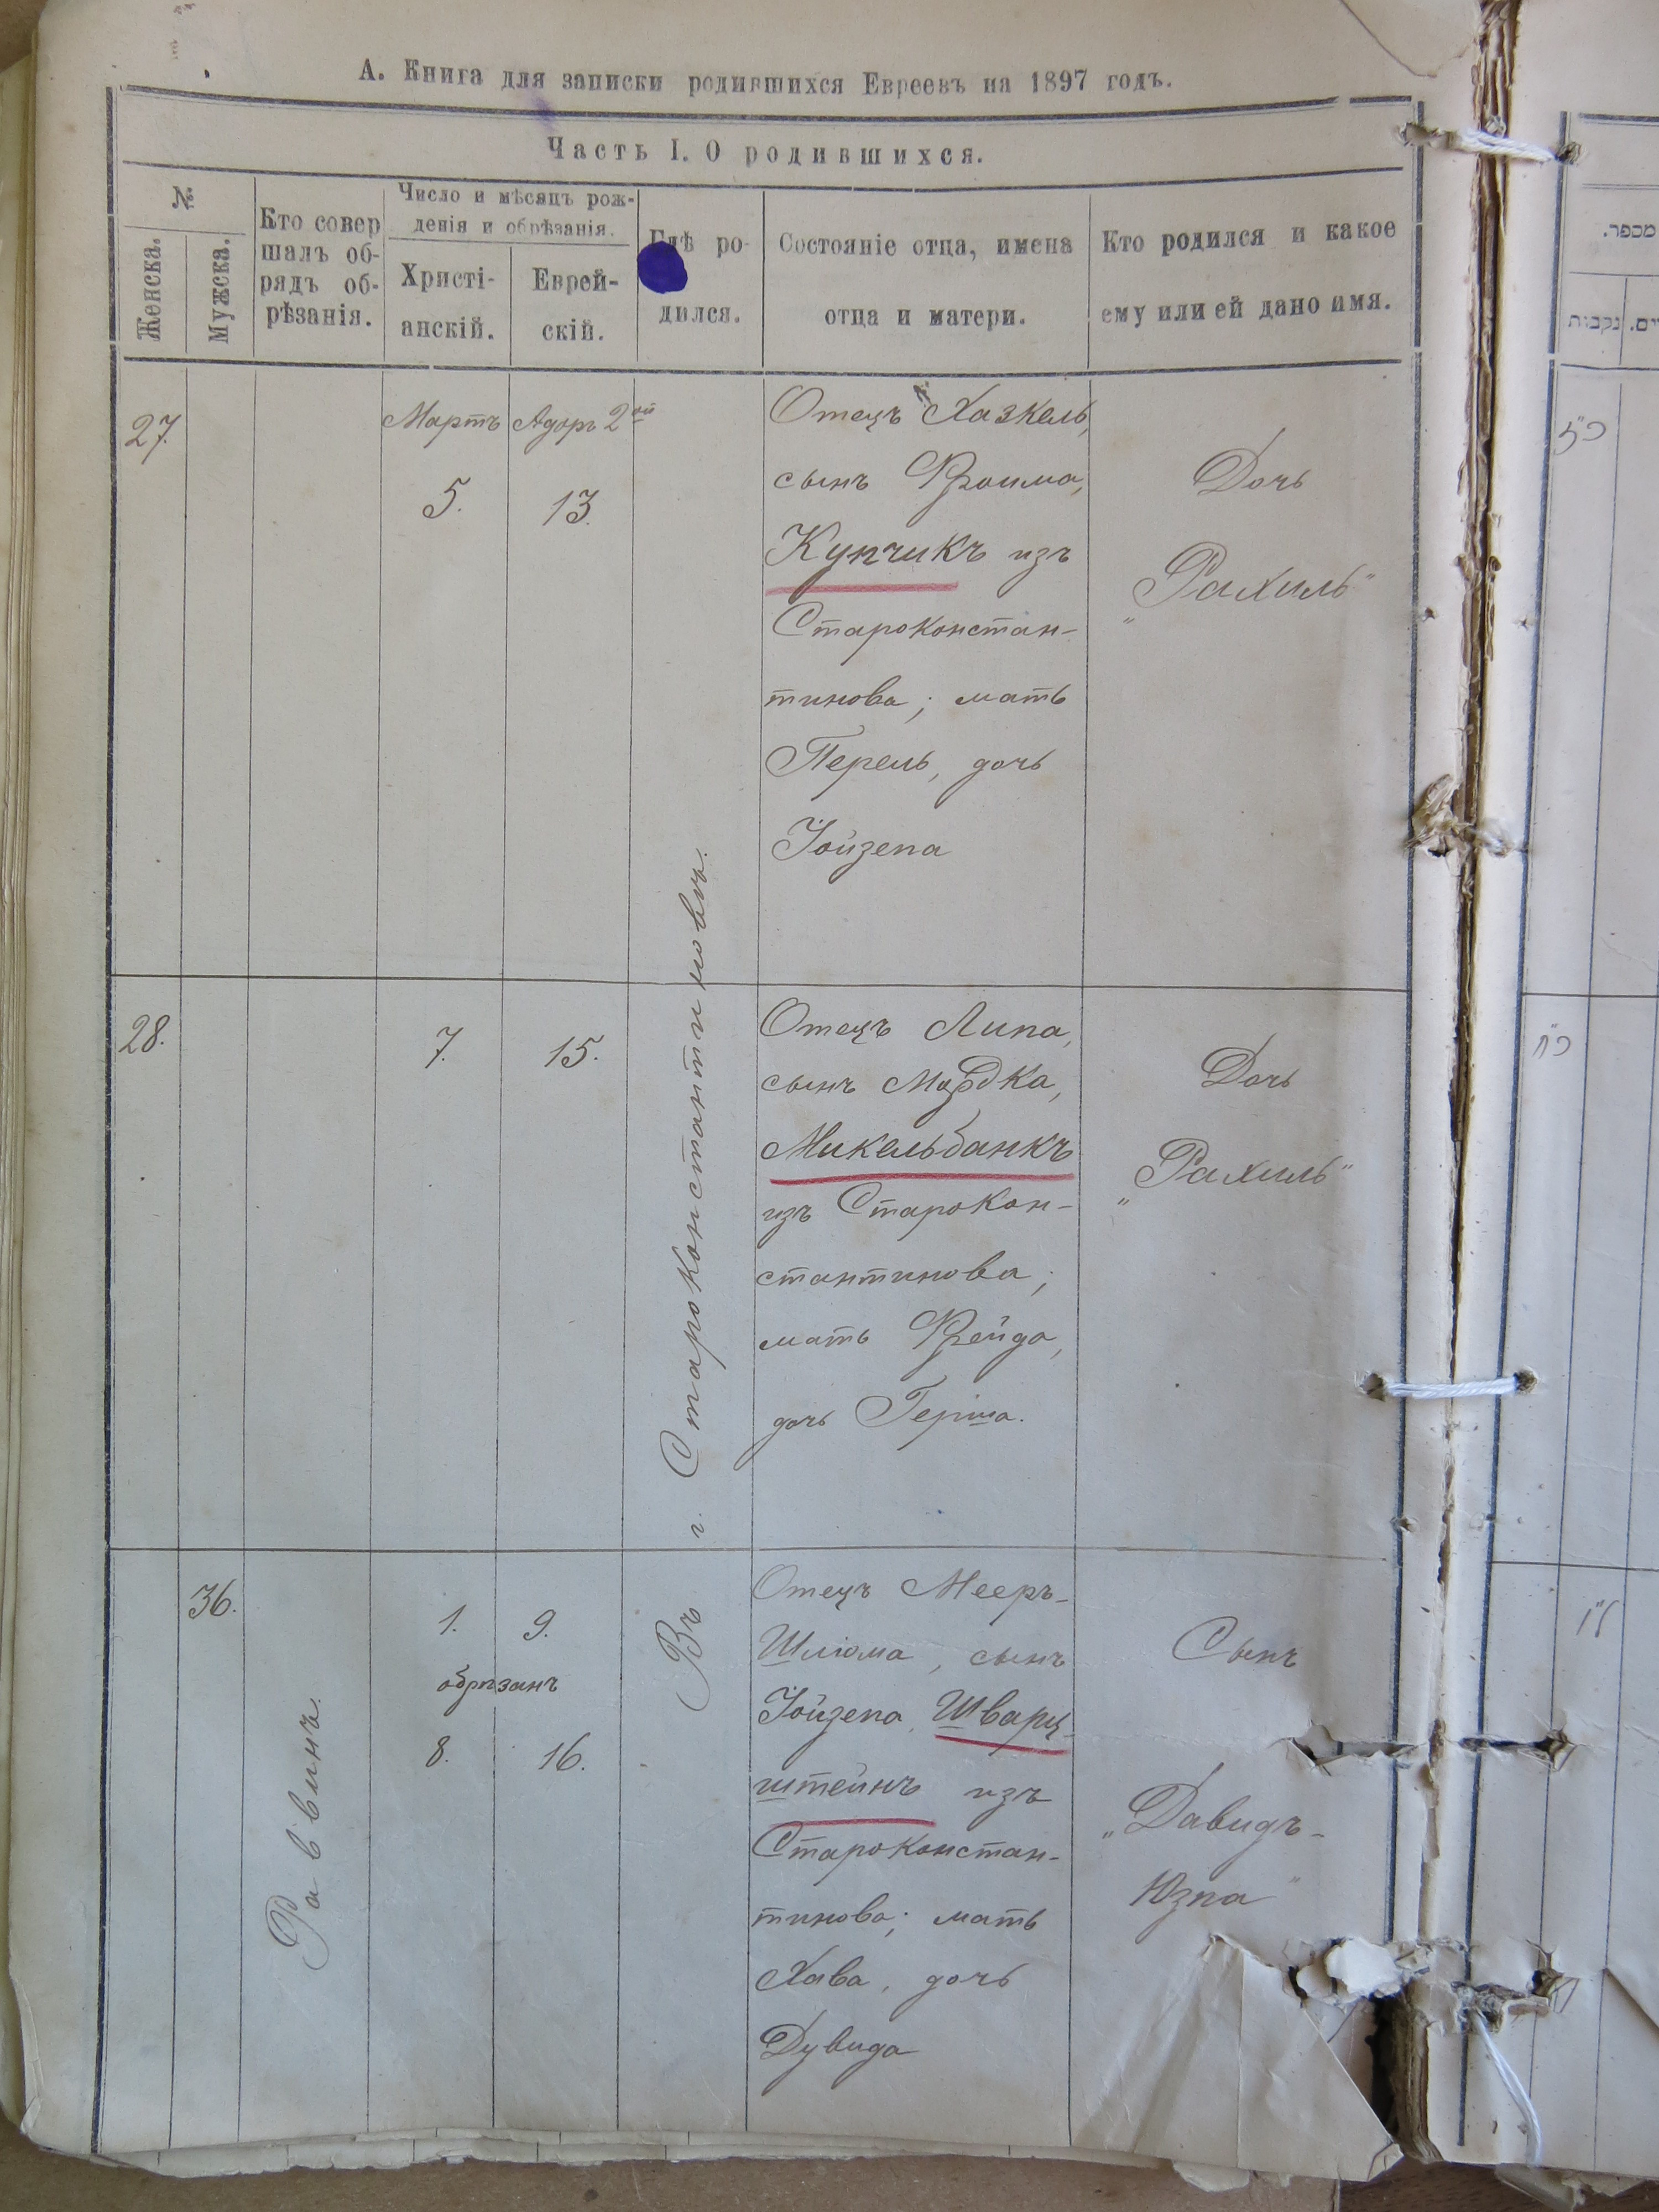 А. Книга для записки родившихся Евреевъ на 1897 годъ.
Часть I. О родившихся.
№
Женска.
Мужска.
Кто совер
шалъ об-
рядъ об-
рѣзанія.
Число и мѣсяцъ рож-
денія и обрѣзанія.
Христі-
анскій.
Еврей-
скій.
Гдѣ ро-
дился.
Состояніе отца, имена
отца и матери.
Кто родился и какое
ему или ей дано имя.
27.
Мартъ
5.
Адоръ 2ой
13.
Отецъ Хазкель,
сынъ Фроима,
Купчикъ изъ
Староконстан-
тинова; мать
Перель, дочь
Іойзепа
Дочь
„Рахиль"
28.
7.
15.
Отецъ Липа,
сынъ Мордка,
Микельбанкъ
изъ Старокон-
стантинова;
мать Фрейда,
дочь Герша.
Дочь
„Рахиль"
36.
Раввинъ.
1.
9.
обрѣзанъ
8.
16.
Въ г. Староконстантиновъ.
Отецъ Мееръ-
Шлюма, сынъ
Іойзепа, Шварц-
штейнъ изъ
Староконстан-
тинова; мать
Хава, дочь
Дувида
Сынъ
„Давидъ-
Юзпа"
מספר.
נקבות
כ"ז
כ"ח
ל"ו